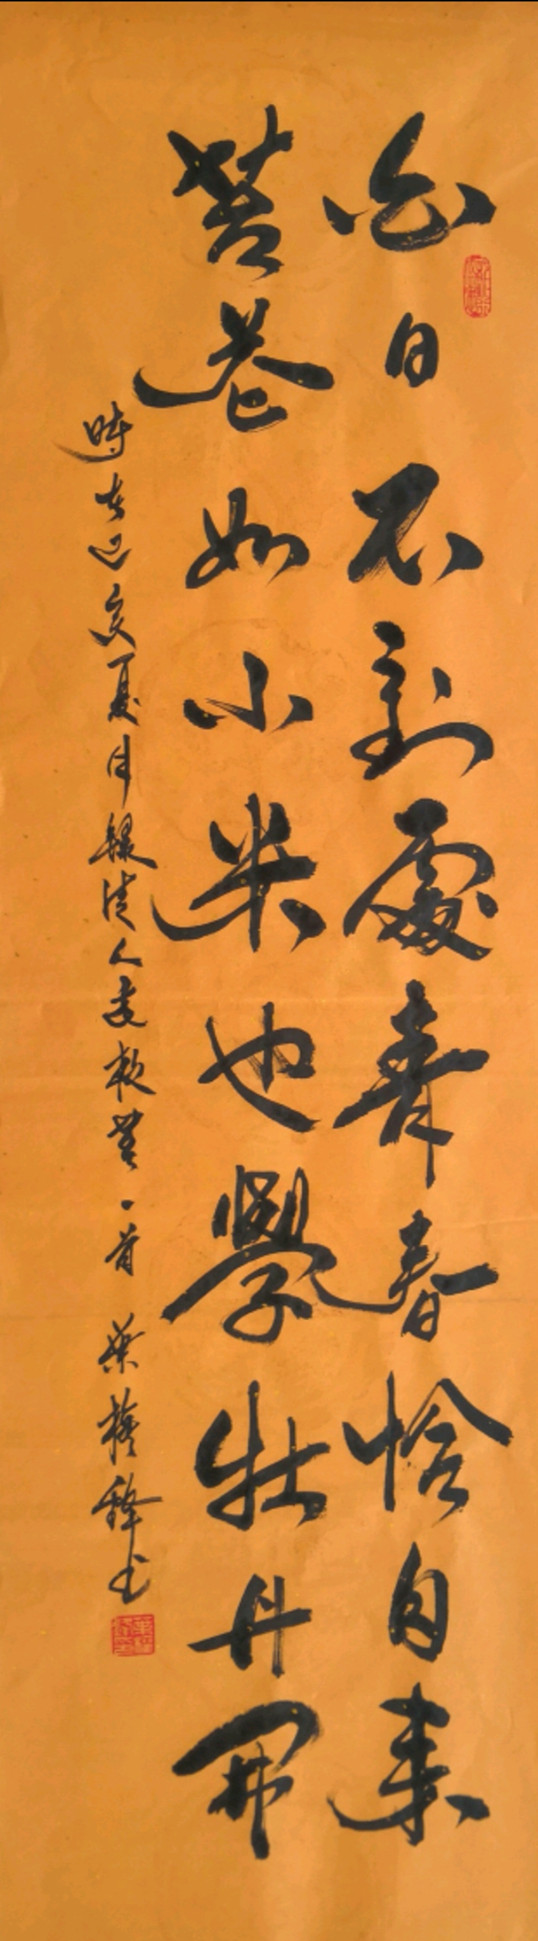 白日不到處青春恰自來
苔花如小米也學牡丹開
時在己亥夏月錄清人袁枚苔一首 葉
書